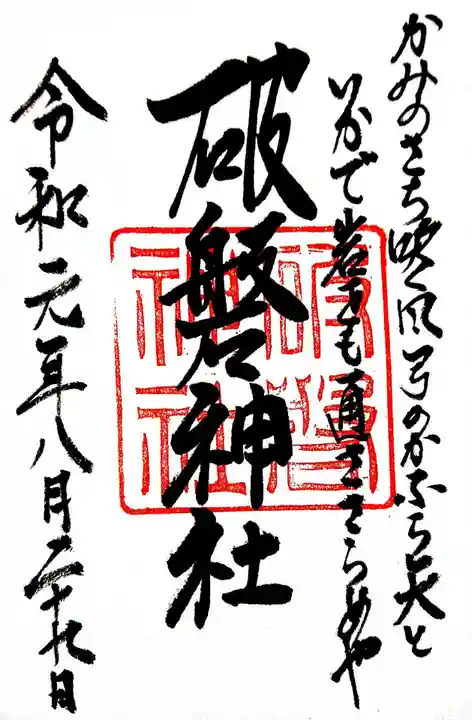 かみのさち吹く風弓のかふら矢と
いかで岩をも通さざらめや
破磐神社
令和元年八月二十九日